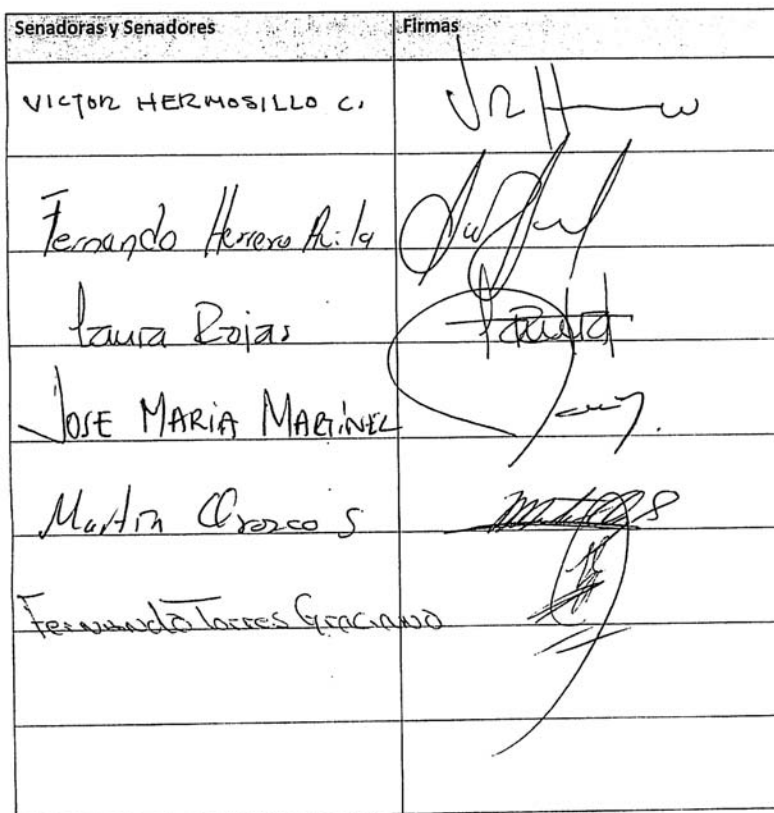 Senadoras y Senadores Firmas
VICTOR HERMOSILLO C.
Fernando Herrera Avila
Laura Rojas
JOSE MARIA MARTINEZ
Martin Orozco S
Fernando Torres Graciano